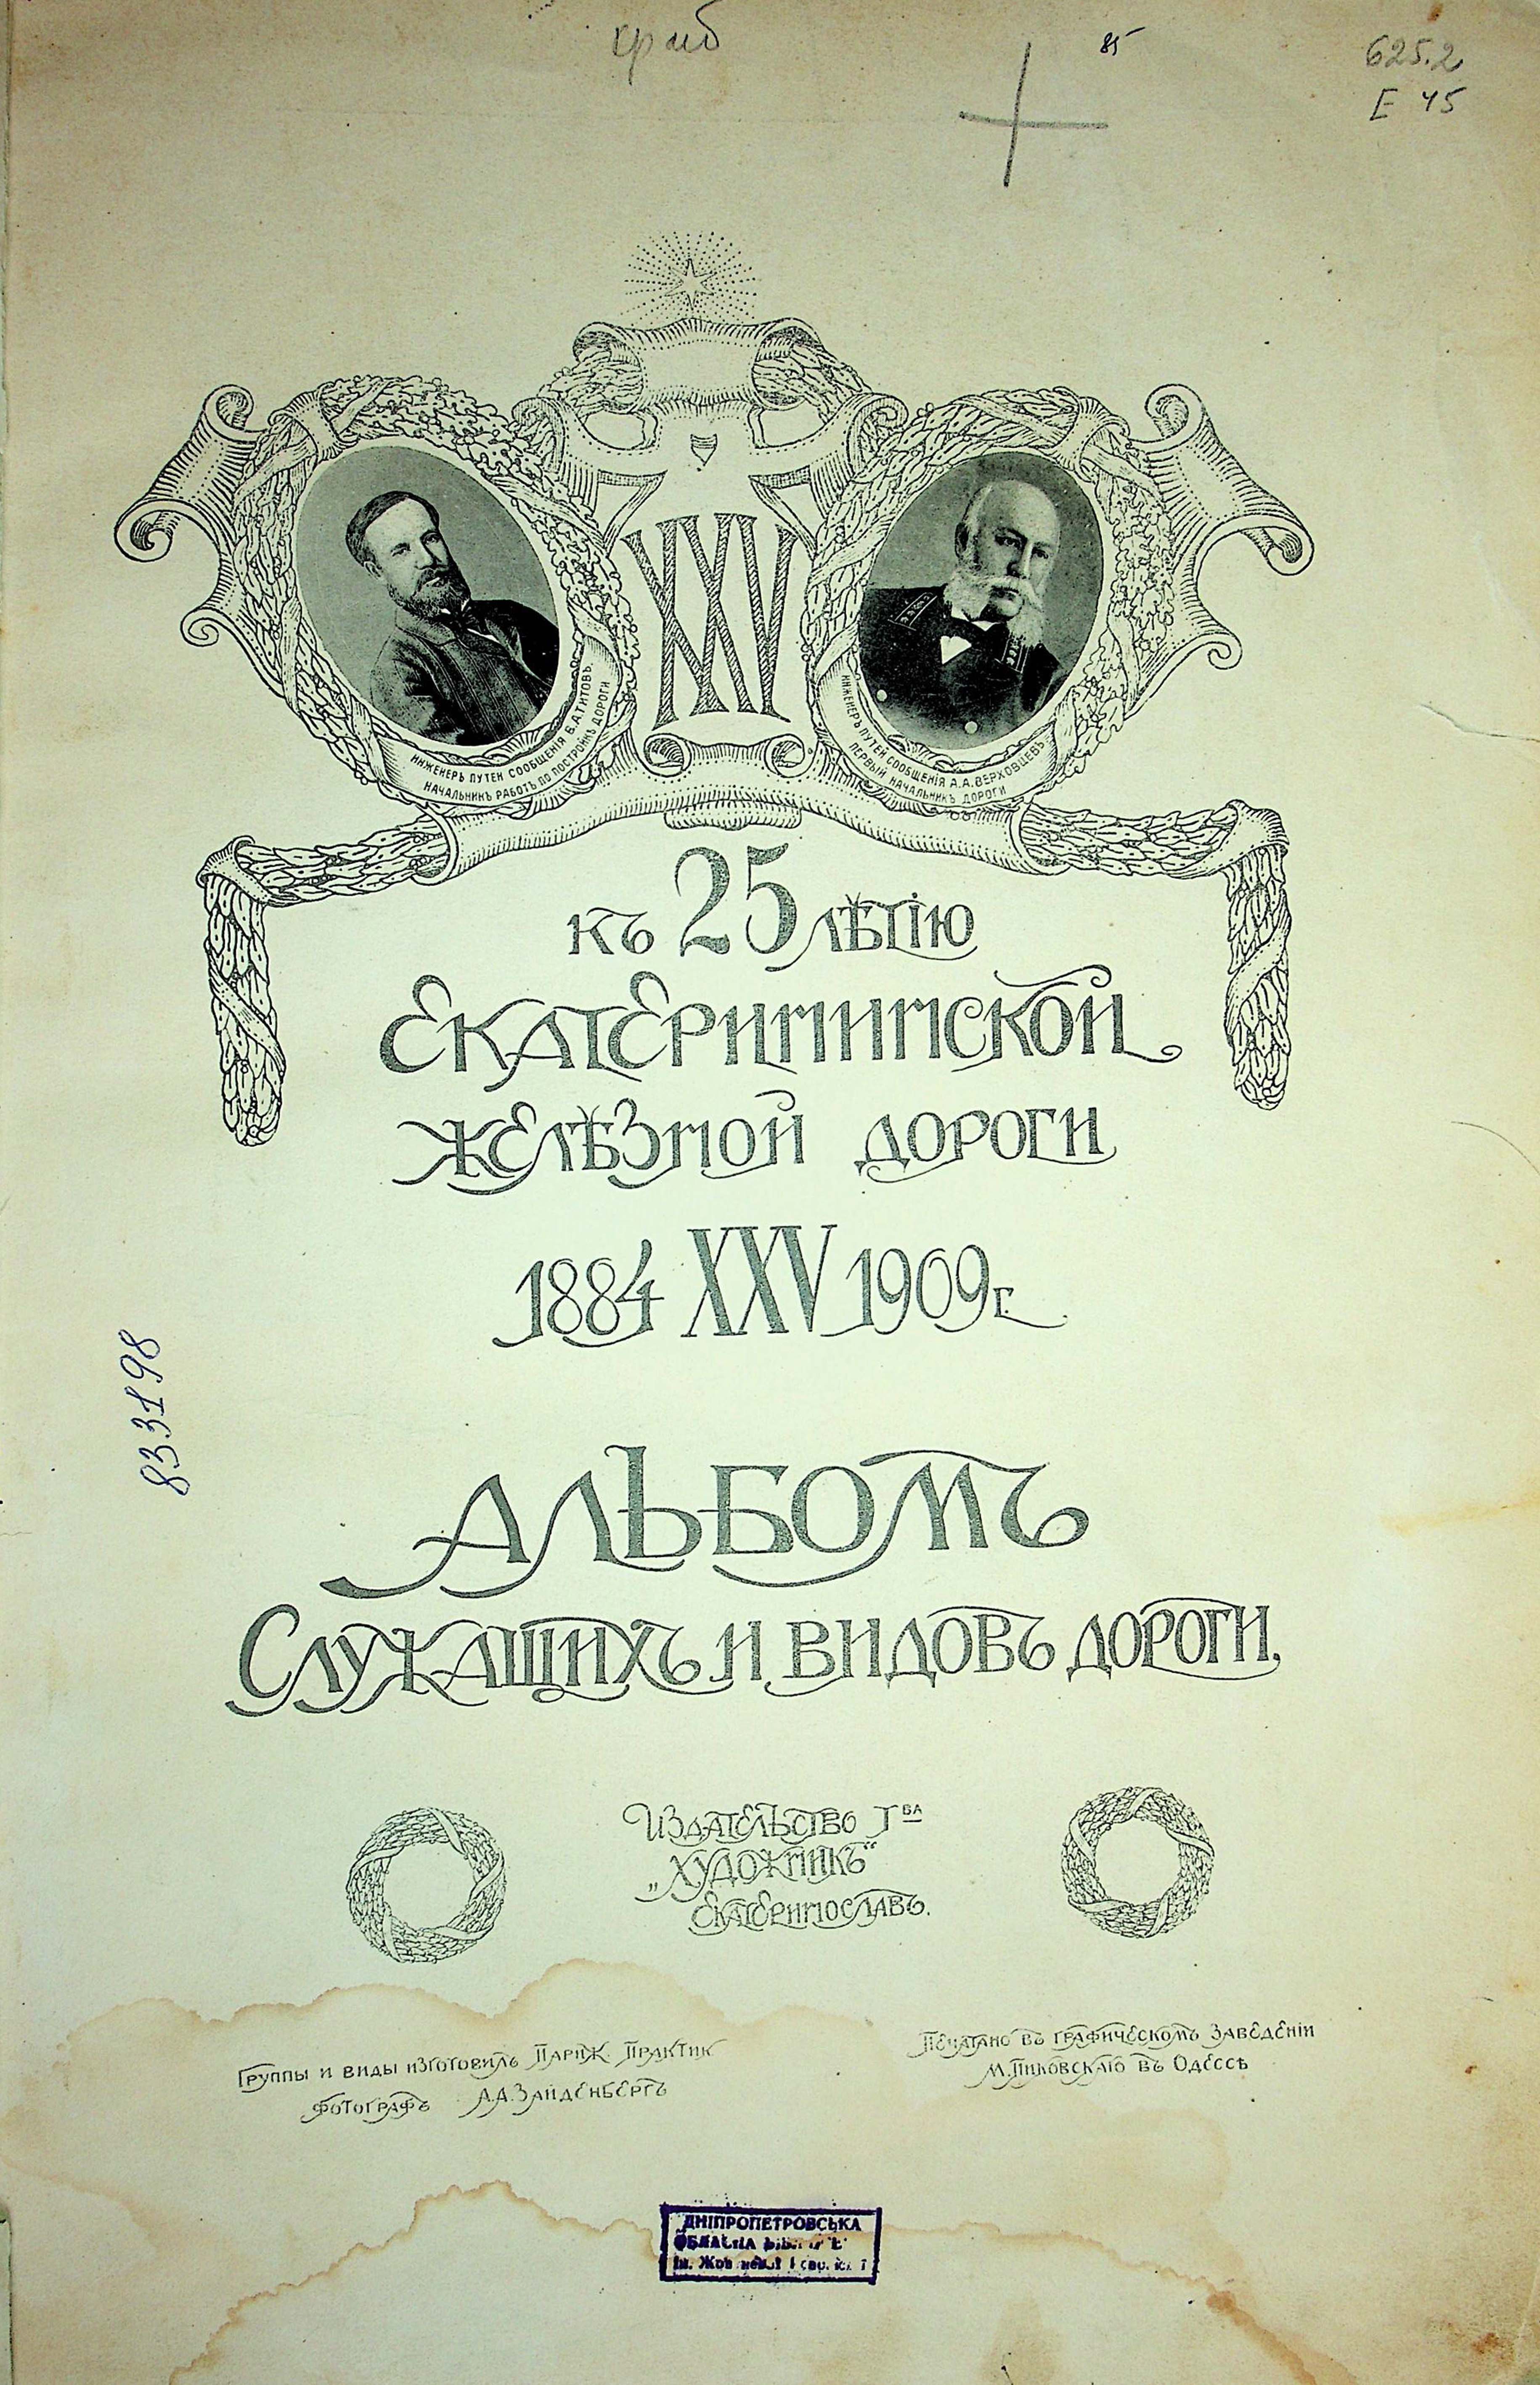 краб
85
625.2
Е 45
XXV
ИНЖЕНЕРЪ ПУТЕЙ СООБЩЕНІЯ В.А.ТИТОВЪ
НАЧАЛЬНИКЪ РАБОТЪ ПО ПОСТРОЙКѢ ДОРОГИ
ИНЖЕНЕРЪ ПУТЕЙ СООБЩЕНІЯ А.А.ВЕРХОВЦЕВЪ
ПЕРВЫЙ НАЧАЛЬНИКЪ ДОРОГИ
КЪ 25 ЛѢТІЮ
ЕКАТЕРИНИНСКОЙ
ЖЕЛѢЗНОЙ ДОРОГИ
1884 XXV 1909 г.
833198
АЛЬБОМЪ
СЛУЖАЩИХЪ И ВИДОВЪ ДОРОГИ.
ИЗДАТЕЛЬСТВО Т-ВА
„ХУДОЖНИКЪ“
ЕКАТЕРИНОСЛАВЪ.
ГРУППЫ И ВИДЫ ИЗГОТОВИЛЪ ПАРИЖ. ПРАКТИК
ФОТОГРАФЪ А.А.ЗАЙДЕНБЕРГЪ
ПЕЧАТАНО ВЪ ГРАФИЧЕСКОМЪ ЗАВЕДЕНІИ
М.ПИКОВСКАГО ВЪ ОДЕССѢ
ДНІПРОПЕТРОВСЬКА
ОБЛАСНА
ім.